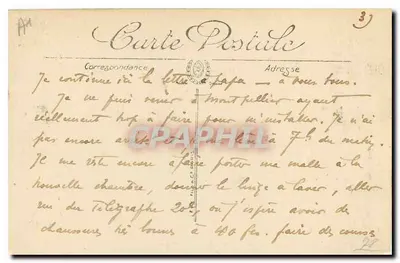 3)
Carte Postale
Correspondance
Adresse
Je continue ici la lettre à papa — à vous tous.
Je ne puis venir à Montpellier ayant
réellement trop à faire pour m'installer. Je n'ai
pas encore à 7h du matin.
Il me reste encore à faire porter ma malle à la
nouvelle chambre, donner le linge à laver, aller
rue du Télégraphe 20, où j'espère avoir de
chaussures très bonnes à 40 frs. faire des courses
CPAPHIL